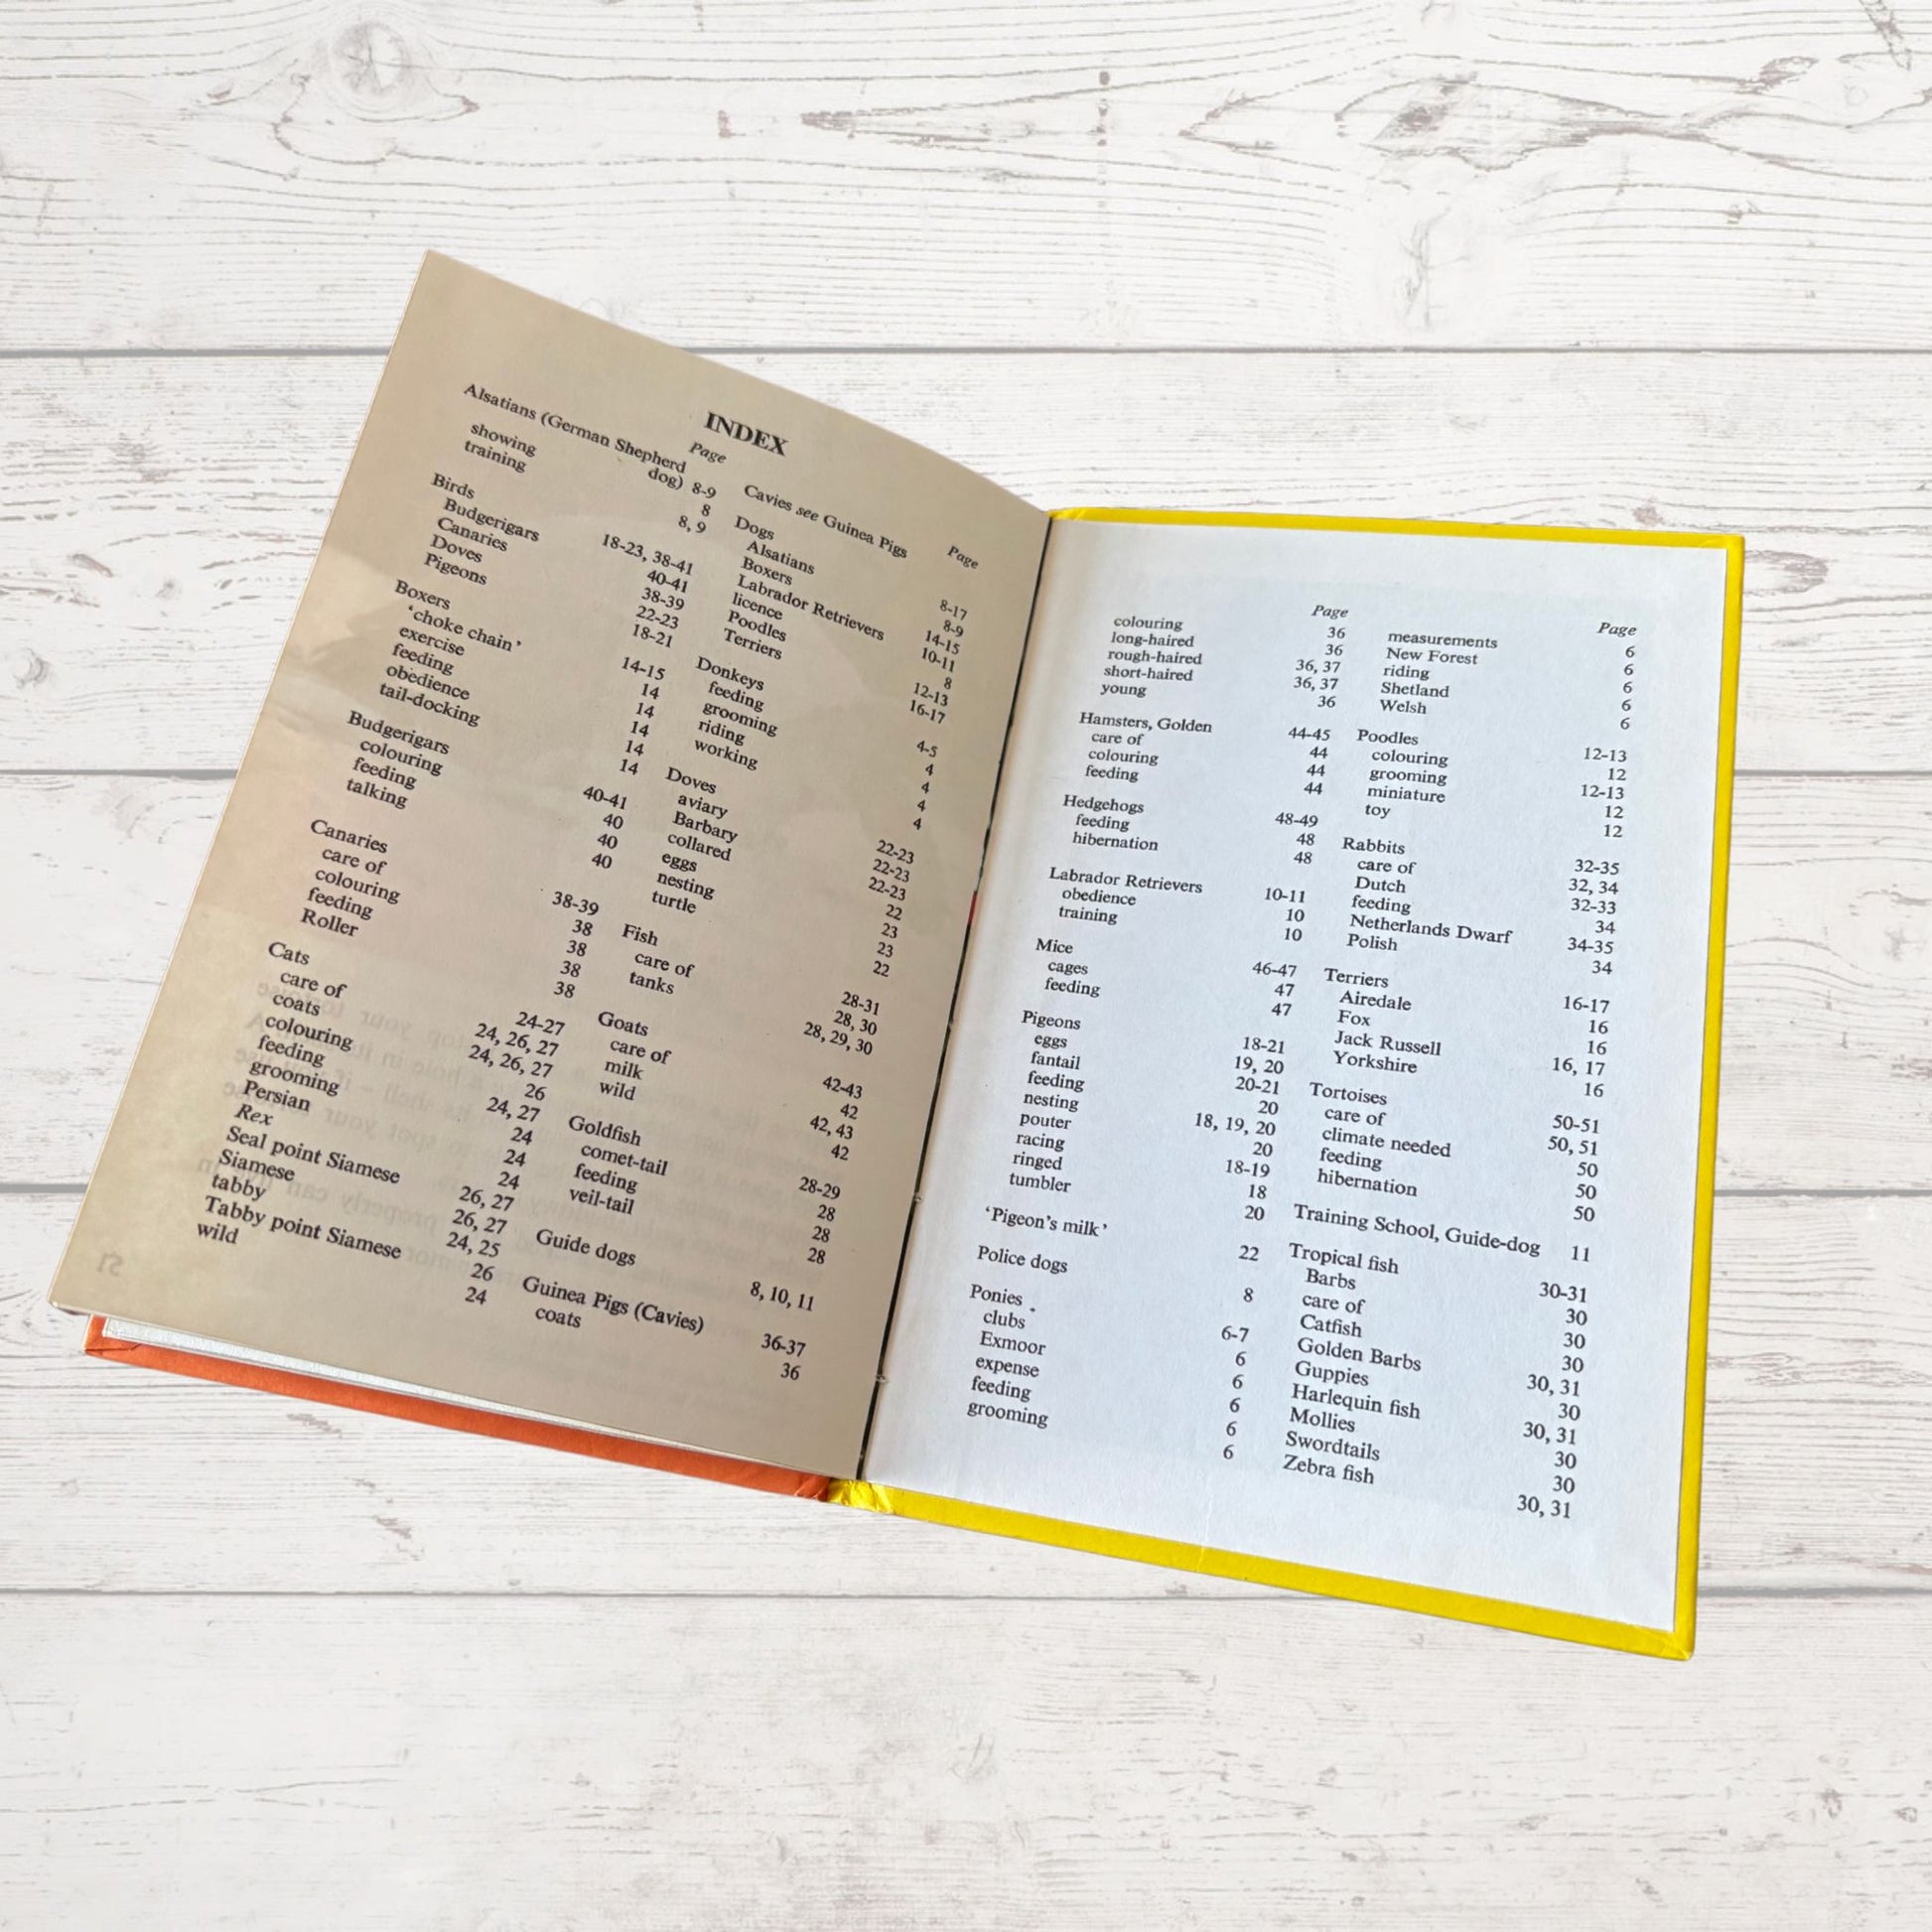 INDEX
Page
Alsatians (German Shepherd
dog) 8-9
showing 8
training 8, 9
Birds 18-23, 38-41
Budgerigars 40-41
Canaries 38-39
Doves 22-23
Pigeons 18-21
Boxers 14-15
‘choke chain’ 14
exercise 14
feeding 14
obedience 14
tail-docking 14
Budgerigars 40-41
colouring 40
feeding 40
talking 40
Canaries 38-39
care of 38
colouring 38
feeding 38
Roller 38
Cats 24-27
care of 24, 26, 27
coats 24, 26, 27
colouring 26
feeding 24, 27
grooming 24
Persian 24
Rex 24
Seal point Siamese 26, 27
Siamese 26, 27
tabby 24, 25
Tabby point Siamese 26
wild 24
Page
Cavies see Guinea Pigs
Dogs 8-17
Alsatians 8-9
Boxers 14-15
Labrador Retrievers 10-11
licence 8
Poodles 12-13
Terriers 16-17
Donkeys 4-5
feeding 4
grooming 4
riding 4
working 4
Doves 22-23
aviary 22-23
Barbary 22-23
collared 22
eggs 23
nesting 23
turtle 22
Fish 28-31
care of 28, 30
tanks 28, 29, 30
Goats 42-43
care of 42
milk 42, 43
wild 42
Goldfish 28-29
comet-tail 28
feeding 28
veil-tail 28
Guide dogs 8, 10, 11
Guinea Pigs (Cavies) 36-37
coats 36
Page
colouring 36
long-haired 36
rough-haired 36, 37
short-haired 36, 37
young 36
Hamsters, Golden 44-45
care of 44
colouring 44
feeding 44
Hedgehogs 48-49
feeding 48
hibernation 48
Labrador Retrievers 10-11
obedience 10
training 10
Mice 46-47
cages 47
feeding 47
Pigeons 18-21
eggs 19, 20
fantail 20-21
feeding 20
nesting 18, 19, 20
pouter 20
racing 18-19
ringed 18
tumbler 20
‘Pigeon’s milk’ 22
Police dogs 8
Ponies 6-7
clubs 6
Exmoor 6
expense 6
feeding 6
grooming 6
Page
measurements 6
New Forest 6
riding 6
Shetland 6
Welsh 6
Poodles 12-13
colouring 12
grooming 12-13
miniature 12
toy 12
Rabbits 32-35
care of 32, 34
Dutch 32-33
feeding 34
Netherlands Dwarf 34-35
Polish 34
Terriers 16-17
Airedale 16
Fox 16
Jack Russell 16, 17
Yorkshire 16
Tortoises 50-51
care of 50, 51
climate needed 50
feeding 50
hibernation 50
Training School, Guide-dog 11
Tropical fish 30-31
Barbs 30
care of 30
Catfish 30
Golden Barbs 30, 31
Guppies 30
Harlequin fish 30, 31
Mollies 30
Swordtails 30
Zebra fish 30, 31